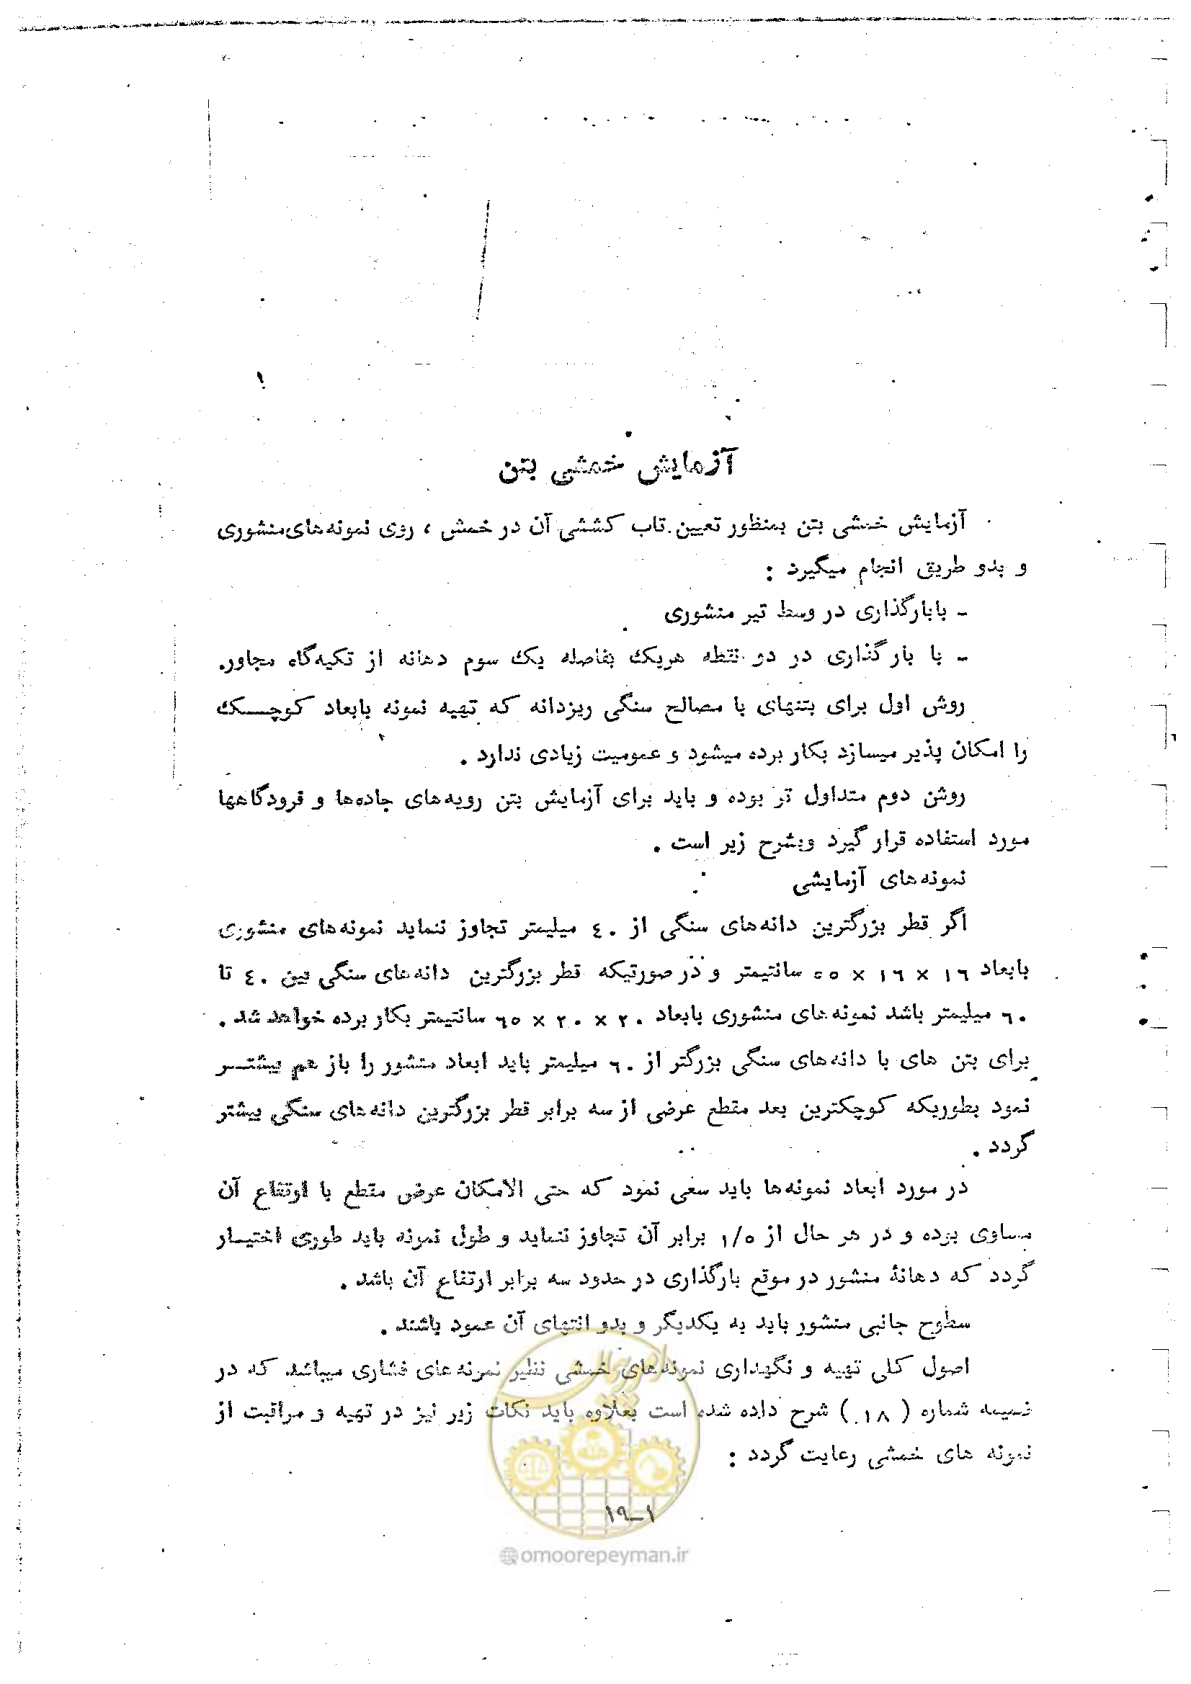 آزمایش خمشی بتن
آزمایش خمشی بتن بمنظور تعیین تاب کششی آن در خمش ، روی نمونه‌های‌منشوری
و بدو طریق انجام میگیرد :
ـ بابارگذاری در وسط تیر منشوری
ـ با بارگذاری در دو نقطه هریک بفاصله یک سوم دهانه از تکیه‌گاه مجاور.
روش اول برای بتنهای با مصالح سنگی ریزدانه که تهیه نمونه بابعاد کوچـــک
را امکان پذیر میسازد بکار برده میشود و عمومیت زیادی ندارد .
روش دوم متداول تر بوده و باید برای آزمایش بتن رویه‌های جاده‌ها و فرودگاهها
مورد استفاده قرار گیرد وبشرح زیر است .
نمونه‌های آزمایشی
اگر قطر بزرگترین دانه‌های سنگی از ٤٠ میلیمتر تجاوز ننماید نمونه‌های منشوری
بابعاد ١٦ × ١٦ × ٥٥ سانتیمتر و در صورتیکه قطر بزرگترین دانه‌های سنگی بین ٤٠ تا
٦٠ میلیمتر باشد نمونه‌های منشوری بابعاد ٢٠ × ٢٠ × ٦٥ سانتیمتر بکار برده خواهد شد .
برای بتن های با دانه‌های سنگی بزرگتر از ٦٠ میلیمتر باید ابعاد منشور را باز هم بیشتـــر
نمود بطوریکه کوچکترین بعد مقطع عرضی از سه برابر قطر بزرگترین دانه‌های سنگی بیشتر
گردد .
در مورد ابعاد نمونه‌ها باید سعی نمود که حتی الامکان عرض مقطع با ارتفاع آن
مساوی بوده و در هر حال از ١/٥ برابر آن تجاوز ننماید و طول نمونه باید طوری اختیــار
گردد که دهانۀ منشور در موقع بارگذاری در حدود سه برابر ارتفاع آن باشد .
سطوح جانبی منشور باید به یکدیگر و بدو انتهای آن عمود باشند .
اصول کلی تهیه و نگهداری نمونه‌های خمشی نظیر نمونه‌های فشاری میباشد که در
ضمیمه شماره ( ١٨ ) شرح داده شده است بعلاوه باید نکات زیر نیز در تهیه و مراقبت از
نمونه های خمشی رعایت گردد :
١٩ـ١
@omoorepeyman.ir